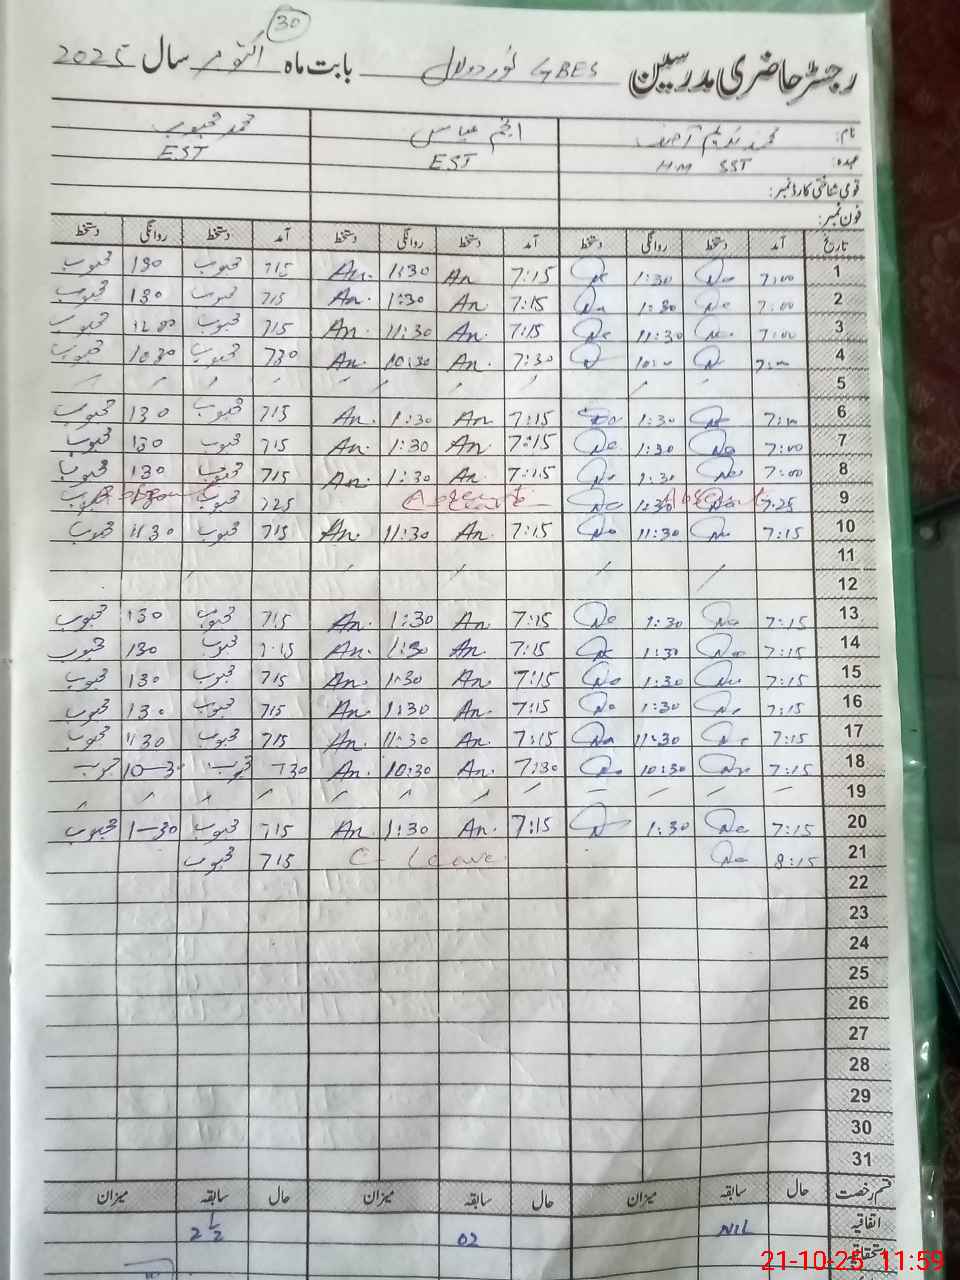 30
رجسٹر حاضری مدرسین GBES نور دولال بابت ماہ اکتوبر سال 2025
نام: محمد ندیم آصف انجم عباس محمد محبوب
عہدہ: HM SST EST EST
قومی شناختی کارڈ نمبر:
فون نمبر:
تاریخ آمد دستخط روانگی دستخط آمد دستخط روانگی دستخط آمد دستخط روانگی دستخط
1 7:00 1:30 7:15 An 1:30 An. 715 محبوب 130 محبوب
2 7:00 1:30 7:15 An 1:30 An. 715 محبوب 130 محبوب
3 7:00 11:30 7:15 An. 11:30 An. 715 محبوب محبوب
4 7:30 An. 10:30 An. 730 محبوب 1030 محبوب
5
6 1:30 7:15 An 1:30 An. 715 محبوب 130 محبوب
7 7:00 1:30 7:15 An 1:30 An. 715 محبوب 130 محبوب
8 7:00 1:30 7:15 An. 1:30 An. 715 محبوب 130 محبوب
9 7:25 1:30 725 محبوب محبوب
10 7:15 11:30 7:15 An. 11:30 An. 715 محبوب 1130 محبوب
11
12
13 7:15 1:30 7:15 An. 1:30 An. 715 محبوب 130 محبوب
14 7:15 1:30 7:15 An 1:30 An. 7:15 محبوب 130 محبوب
15 7:15 1:30 7:15 An. 1:30 An. 715 محبوب 130 محبوب
16 7:15 1:30 7:15 An. 1:30 An. 715 محبوب 130 محبوب
17 7:15 11:30 7:15 An. 11:30 An. 715 محبوب 1130 محبوب
18 7:15 10:30 7:30 An. 10:30 An. 730 محبوب 10-30 محبوب
19
20 7:15 1:30 7:15 An. 1:30 An. 715 محبوب 1-30 محبوب
21 8:15 C-Leave 715 محبوب
22
23
24
25
26
27
28
29
30
31
قسم رخصت حال سابقہ میزان حال سابقہ میزان حال سابقہ میزان
اتفاقیہ NIL 02 2 1/2
استحقاقیہ
21-10-25 11:59